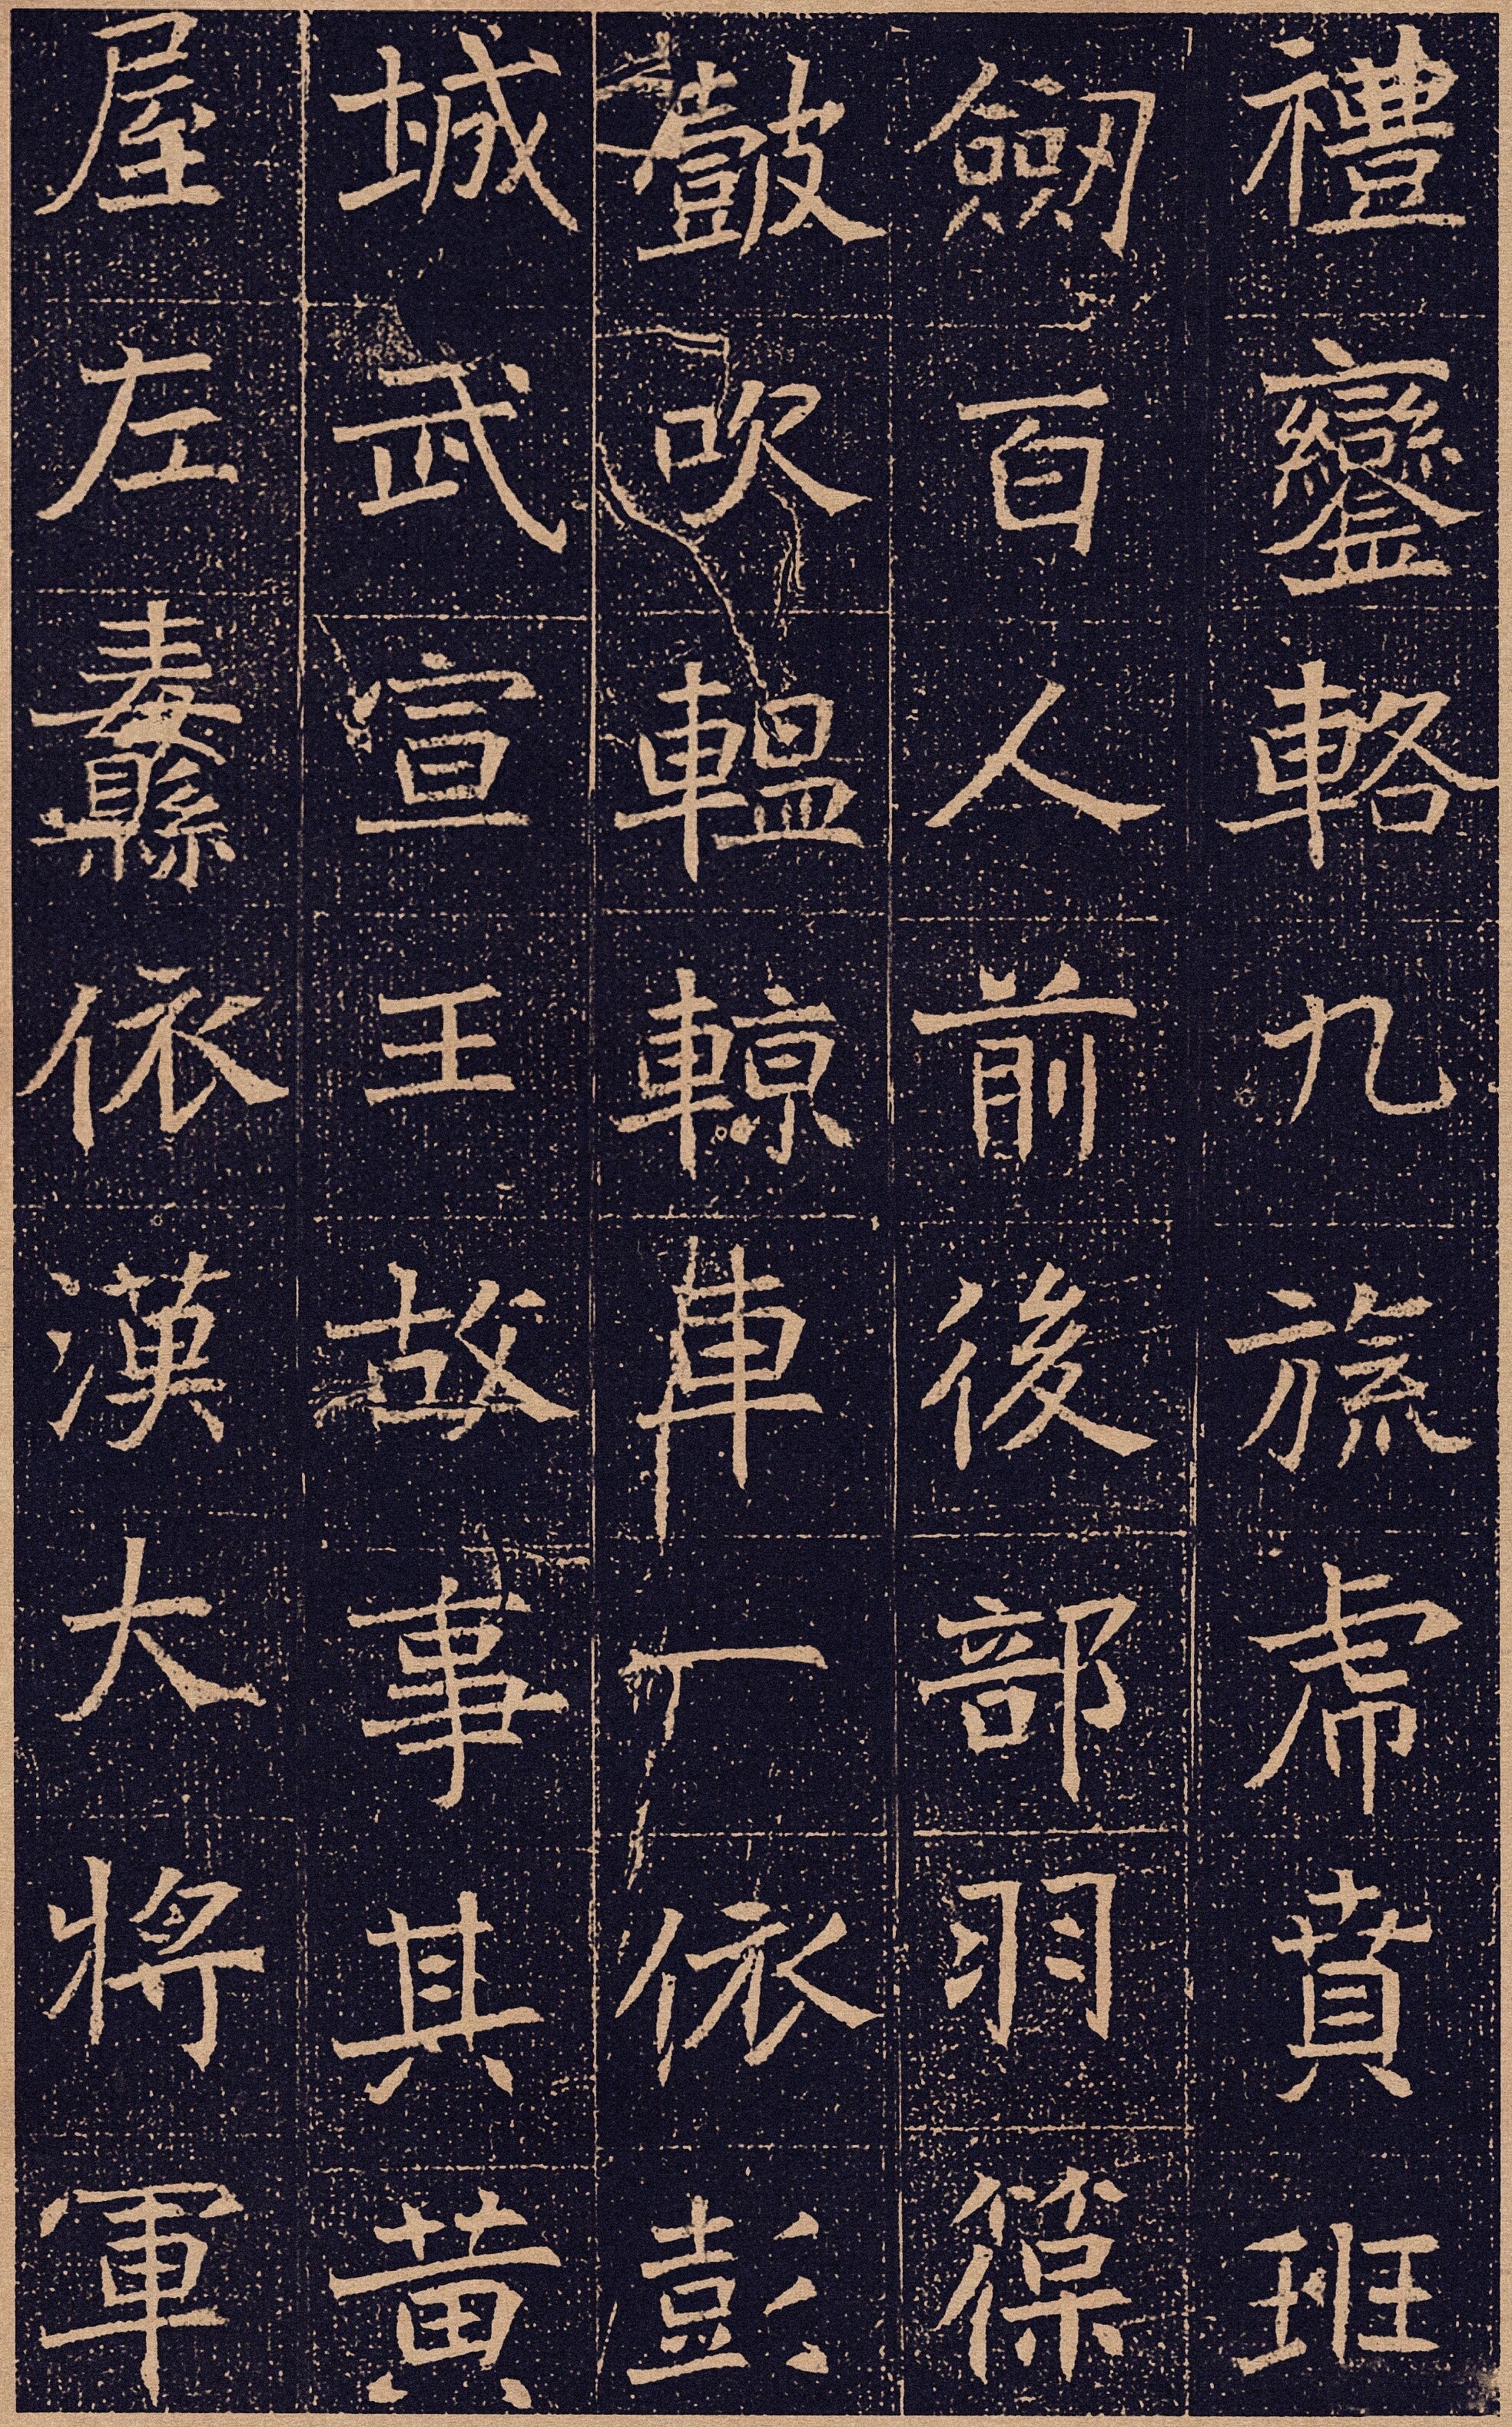 禮鑾輅九旒虎賁班
劒百人前後部羽葆
鼓吹轀輬車依彭
城武宣王故事其黃
屋左纛依漢大將軍